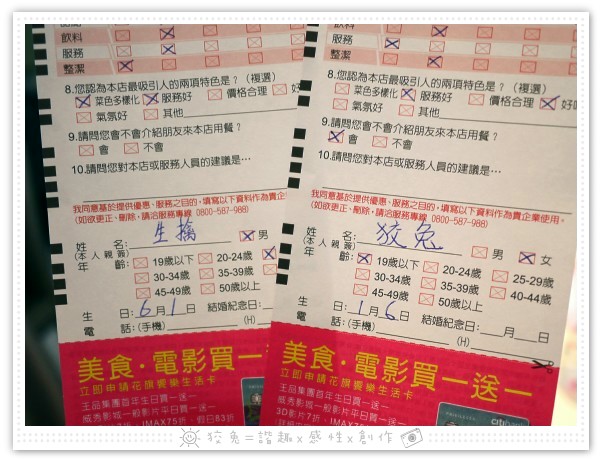 飲料
服務
整潔
8.您認為本店最吸引人的兩項特色是？（複選）
菜色多樣化 服務好 價格合理
氣氛好 其他
9.請問您會不會介紹朋友來本店用餐？
會 不會
10.請問您對本店或服務人員的建議是…
我同意基於提供優惠、服務之目的，填寫以下資料作為貴企
(如欲更正、刪除，請洽服務專線 0800-587-988)
姓名: 生擒 男
(本人親簽)
年齡: 19歲以下 20-24歲
30-34歲 35-39歲
45-49歲 50歲以上
生日: 6月1日 結婚紀念日:
電話:(手機) (H)
美食·電影買一
立即申請花旗饗樂生活卡
王品集團首年生日買一送一
威秀影城一般影片平日買一送一
3D影片7折、IMAX75折、假日83折
飲料
服務
整潔
8.您認為本店最吸引人的兩項特色是？（複選）
菜色多樣化 服務好 價格合理 好
氣氛好 其他
9.請問您會不會介紹朋友來本店用餐？
會 不會
10.請問您對本店或服務人員的建議是…
我同意基於提供優惠、服務之目的，填寫以下資料作為貴企業使用。
(如欲更正、刪除，請洽服務專線 0800-587-988)
姓名: 狡兔 男 女
(本人親簽)
年齡: 19歲以下 20-24歲 25-29歲
30-34歲 35-39歲 40-44歲
45-49歲 50歲以上
生日: 1月6日 結婚紀念日: 月 日
電話:(手機) (H)
美食·電影買一送一
立即申請花旗饗樂生活卡
王品集團首年生日買一送一
威秀影城一般影片平日買一送一
3D影片7折、IMAX75折
citi
狡兔=諧趣x感性x創作